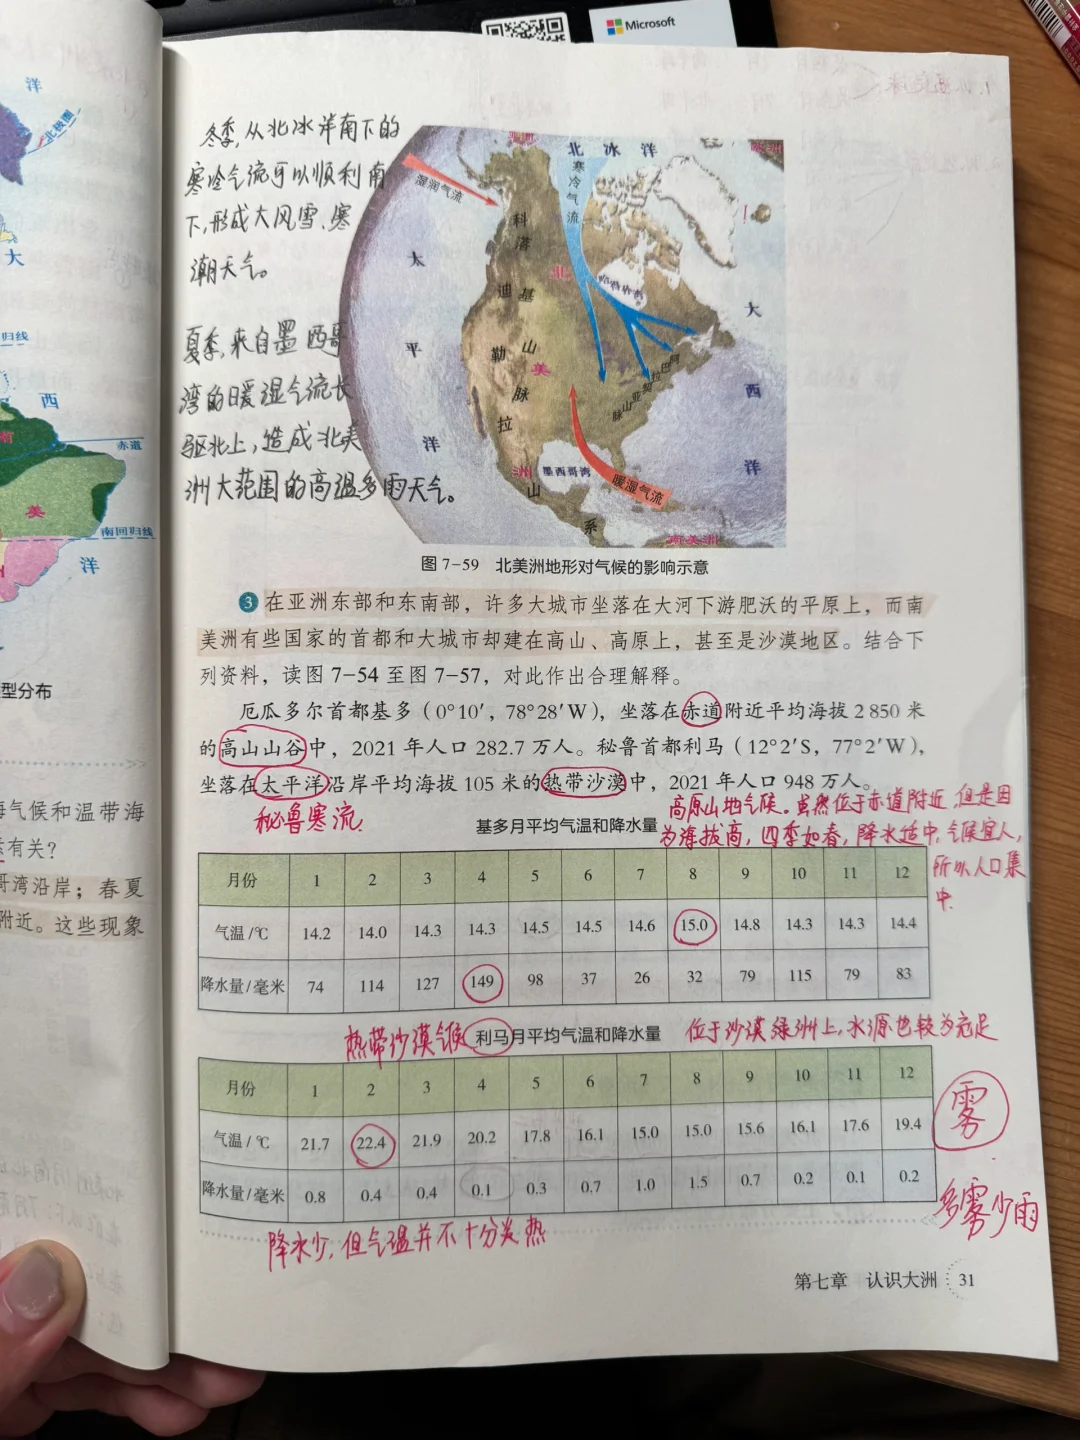 Microsoft
洋
北极圈
大
归线
西
南
赤道
美
南回归线
洋
型分布
海气候和温带海
有关？
哥湾沿岸；春夏
附近。这些现象
冬季，从北冰洋南下的
寒冷气流可以顺利南
下，形成大风雪、寒
潮天气。
夏季，来自墨西哥
湾的暖湿气流长
驱北上，造成北美
洲大范围的高温多雨天气。
北冰洋
寒冷气流
湿润气流
太平洋
科迪勒拉山系
落基山脉
北美洲
哈德孙湾
阿巴拉契亚山脉
大西洋
墨西哥湾
暖湿气流
南美洲
图 7-59 北美洲地形对气候的影响示意
3 在亚洲东部和东南部，许多大城市坐落在大河下游肥沃的平原上，而南
美洲有些国家的首都和大城市却建在高山、高原上，甚至是沙漠地区。结合下
列资料，读图 7-54 至图 7-57，对此作出合理解释。
厄瓜多尔首都基多（0°10′，78°28′W），坐落在赤道附近平均海拔 2 850 米
的高山山谷中，2021 年人口 282.7 万人。秘鲁首都利马（12°2′S，77°2′W），
坐落在太平洋沿岸平均海拔 105 米的热带沙漠中，2021 年人口 948 万人。
秘鲁寒流
高原山地气候。虽然位于赤道附近，但是因
为海拔高，四季如春，降水适中，气候宜人，
所以人口集
中.
基多月平均气温和降水量
月份 1 2 3 4 5 6 7 8 9 10 11 12
气温/℃ 14.2 14.0 14.3 14.3 14.5 14.5 14.6 15.0 14.8 14.3 14.3 14.4
降水量/毫米 74 114 127 149 98 37 26 32 79 115 79 83
热带沙漠气候
利马月平均气温和降水量
位于沙漠绿洲上，水源也较为充足
月份 1 2 3 4 5 6 7 8 9 10 11 12
气温/℃ 21.7 22.4 21.9 20.2 17.8 16.1 15.0 15.0 15.6 16.1 17.6 19.4
降水量/毫米 0.8 0.4 0.4 0.1 0.3 0.7 1.0 1.5 0.7 0.2 0.1 0.2
雾
多雾少雨
降水少，但气温并不十分炎热
第七章 认识大洲 31